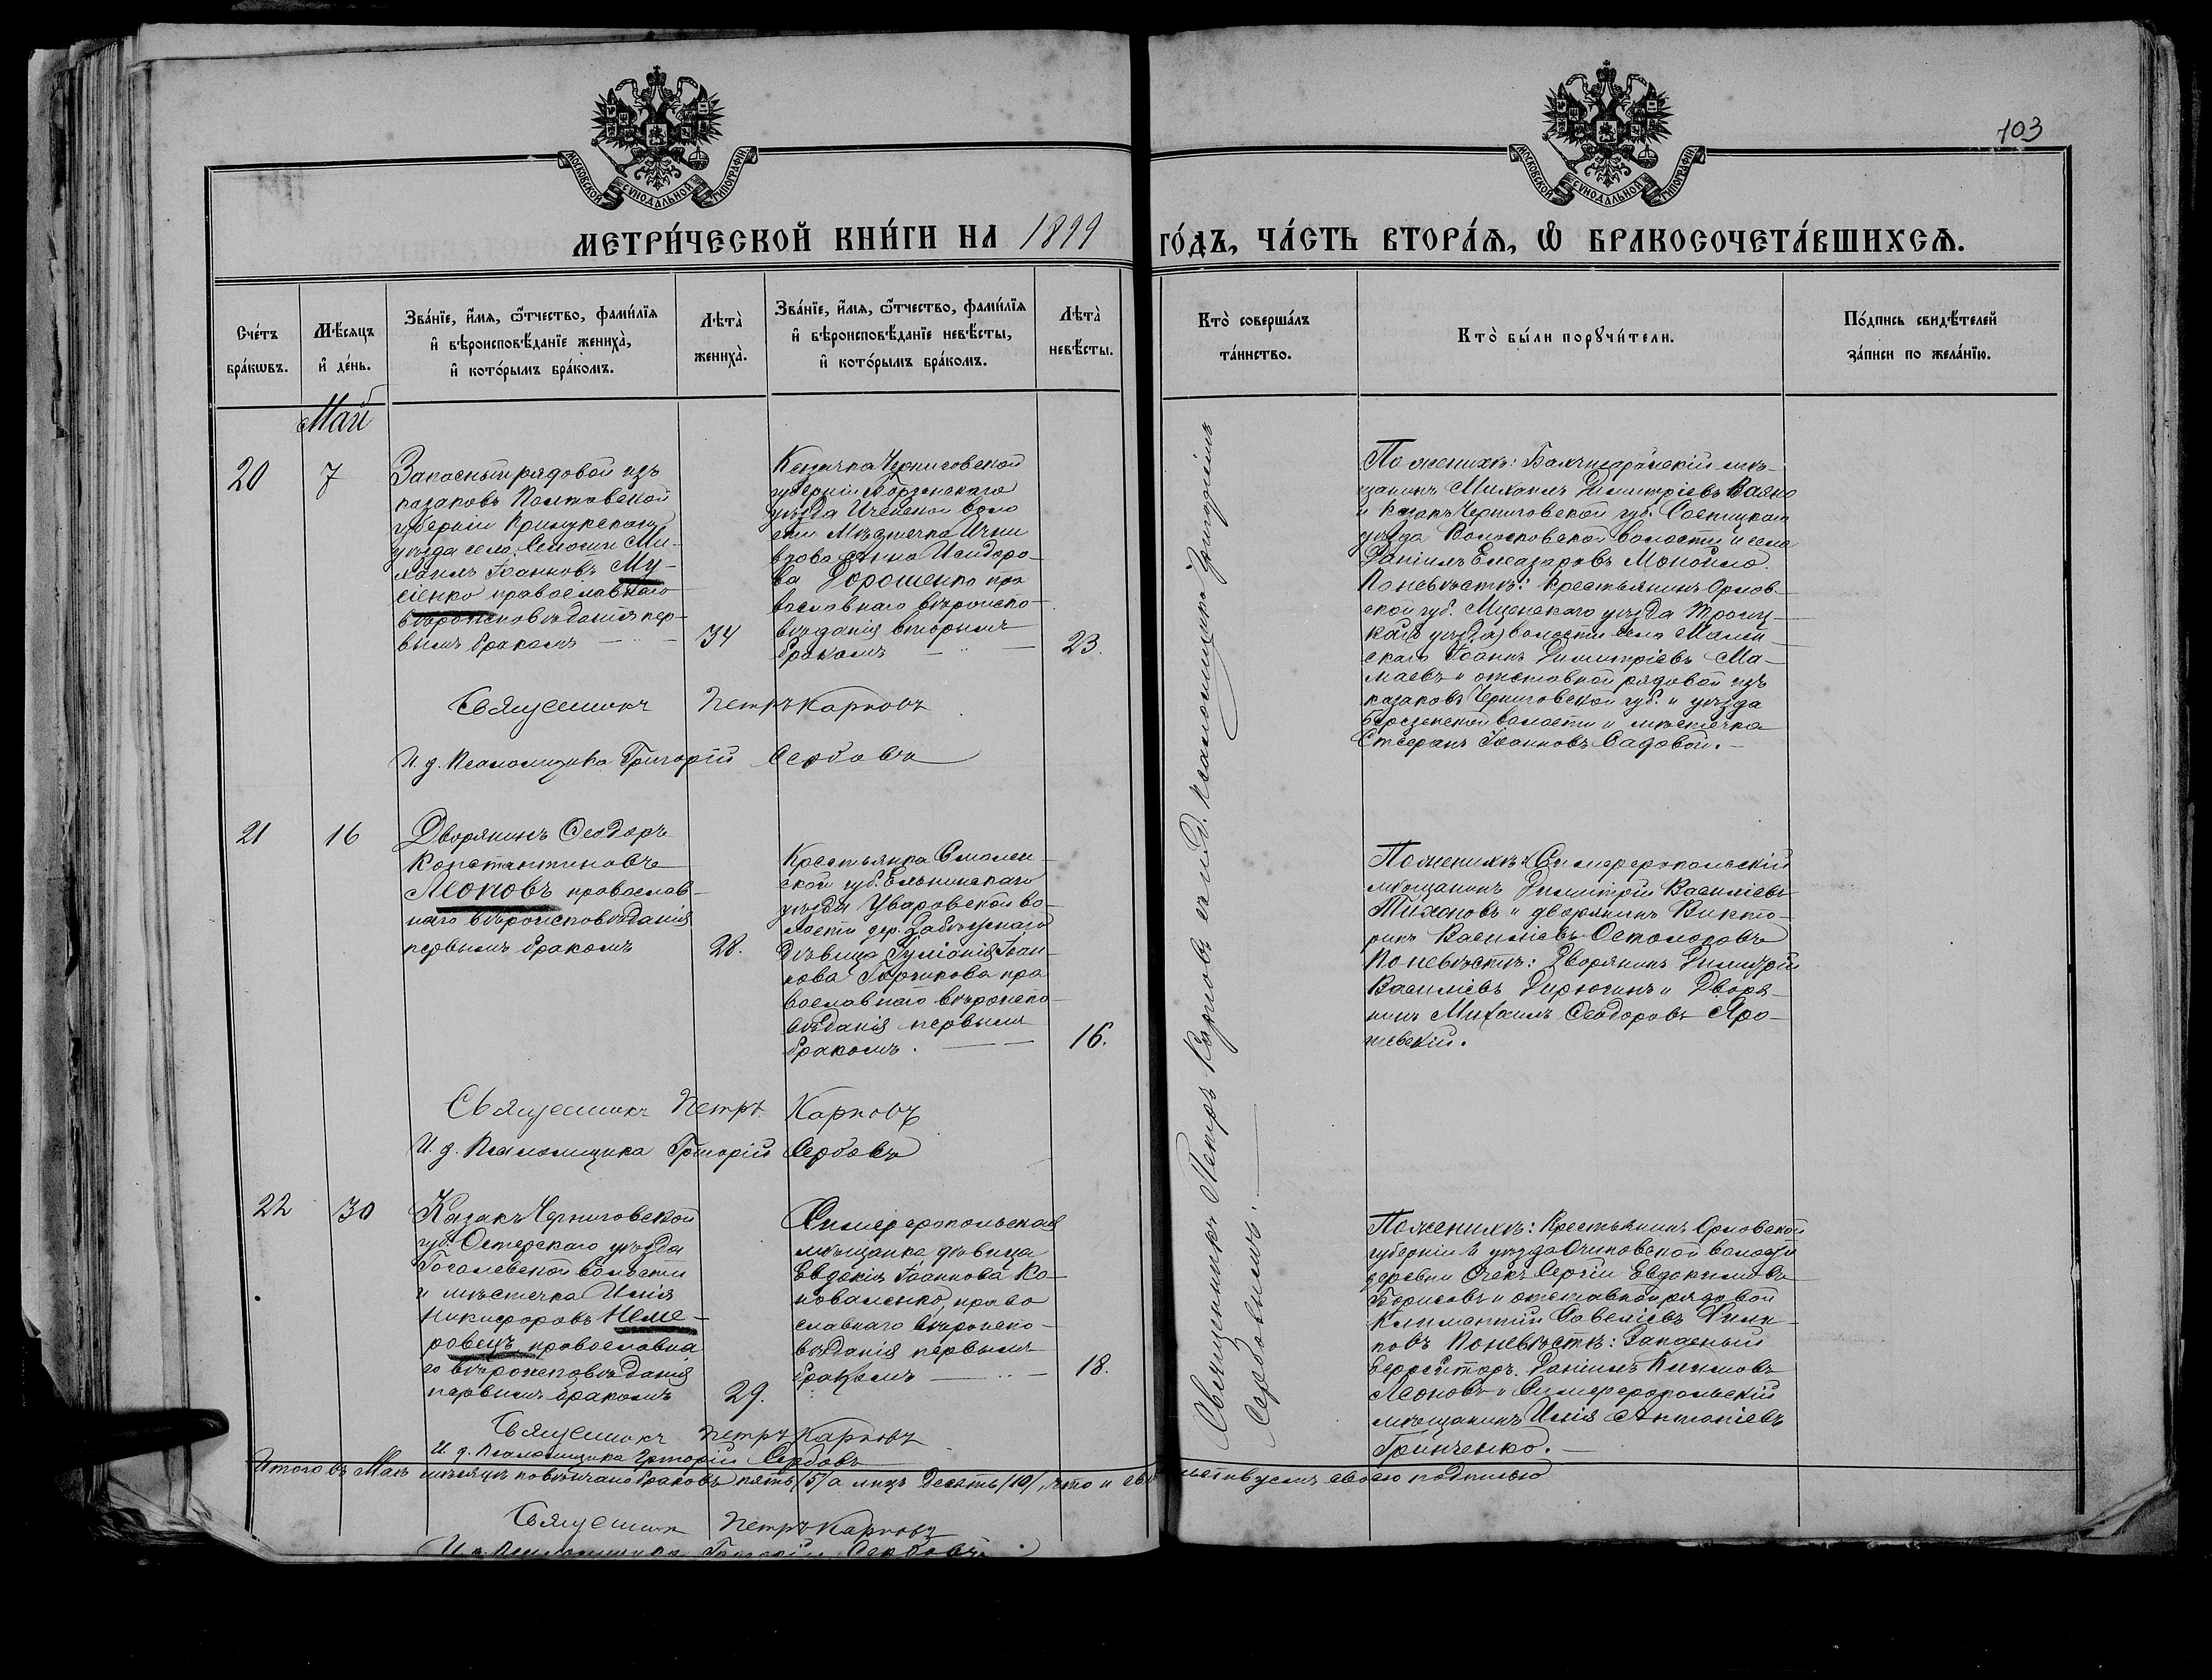 103
МОСКОВСКОЙ СѴНОДАЛЬНОЙ ТИПОГРАФІИ
МОСКОВСКОЙ СѴНОДАЛЬНОЙ ТИПОГРАФІИ
МЕТРИ́ЧЕСКОЙ КНИ́ГИ НА 1899 ГО́ДЪ, ЧА́СТЬ ВТОРА́Ѧ, Ѽ БРАКОСОЧЕТА́ВШИХСѦ.
Счéтъ
брáкѡвъ.
Мѣ́сѧцъ
и҆ дéнь.
Звáнїе, и҆́мѧ, ѻ҆́тчество, фамѝлїѧ
и҆ вѣроисповѣ́данїе женихà,
и҆ котóрымъ брáкомъ.
Лѣтà
женихà.
Звáнїе, и҆́мѧ, ѻ҆́тчество, фамѝлїѧ
и҆ вѣроисповѣ́данїе невѣ́сты,
и҆ котóрымъ брáкомъ.
Лѣтà
невѣ́сты.
Ктò совершáлъ
тáинство.
Ктò бы́ли порꙋчи́тели.
Пóдпись свидѣ́телей
зáписи по желáнїю.
Май
20
7
Запасный рядовой изъ
казаковъ Полтавской
губерніи Прилукскаго
уѣзда села
Ми-
хаилъ Іоанновъ Му-
сіенко православнаго
вѣроисповѣданія пер-
вымъ бракомъ
34
Казачка Черниговской
губерніи Борзенскаго
уѣзда Иченской воло
сти Мѣстечка Ични
вдова Анна Исидоро-
ва Дорошенко пра
вославнаго вѣроиспо-
вѣданія вторымъ
бракомъ
23.
По женихѣ: Бахчисарайскій мѣ-
щанинъ Михаилъ Димитріевъ
и казакъ Черниговской губ. Сосницкаго
уѣзда Волосковской волости и села
Даніилъ Елеазаровъ
По невѣстѣ: Крестьянинъ Орлов-
ской губ. Мценскаго уѣзда Троиц-
кой (уѣзда) волости села
скаго Іоаннъ Димитріевъ Ма-
маевъ и отставной рядовой изъ
казаковъ Черниговской губ. и уѣзда
волости и мѣстечка
Стефанъ Іоанновъ Садовой.
Священникъ Петръ Карповъ
И. д. Псаломщика Григорій Сербовъ
21
16
Дворянинъ Ѳеодоръ
Константиновъ
Леоновъ православ-
наго вѣроисповѣданія
первымъ бракомъ
28.
Крестьянка Смолен-
ской губ. Ельнинскаго
уѣзда Уваровской во-
лости дер.
дѣвица Іуліанія Іоан-
нова
пра
вославнаго вѣроиспо-
вѣданія первымъ
бракомъ.
16.
По женихѣ: Симферопольскій
мѣщанинъ Димитрій Василіевъ
Тихоновъ и дворянинъ Викто-
ринъ Василіевъ Остолоповъ
По невѣстѣ: Дворянинъ Димитрій
Василіевъ Дирюгинъ и Дворя-
нинъ Михаилъ Ѳеодоровъ Яро-
шевскій.
Священникъ Петръ Карповъ
И. д. Псаломщика Григорій Сербовъ
22
30
Казакъ Черниговской
губ. Остерскаго уѣзда
Гоголевской волости
и мѣстечка Илія
Никифоровъ Неме-
ровецъ, православна
го вѣроисповѣданія
первымъ бракомъ
29.
Симферопольская
мѣщанка дѣвица
Евдокія Іоаннова Ко-
новаленко, право
славнаго вѣроиспо-
вѣданія первымъ
бракомъ
18.
По женихѣ: Крестьянинъ Орловской
губерніи и уѣзда
волости
деревни
Сергій Евдокимовъ
Борисовъ и отставной рядовой
Климентій Савеліевъ Фили-
повъ По невѣстѣ: Запасный
ефрейторъ Даніилъ
Леоновъ и Симферопольскій
мѣщанинъ Илія Антоніевъ
Гринченко.
Священникъ Петръ Карповъ
И. д. Псаломщика Григорій Сербовъ
Священникъ Петръ Карповъ съ и. д. псаломщика Григоріемъ
Сербовымъ.
Итого въ Маѣ мѣсяцѣ повѣнчано браковъ пять /5/ а лицъ десять /10/, что и свидѣтельствуемъ своею подписью
Священникъ Петръ Карповъ
И. д. Псаломщика Григорій Сербовъ